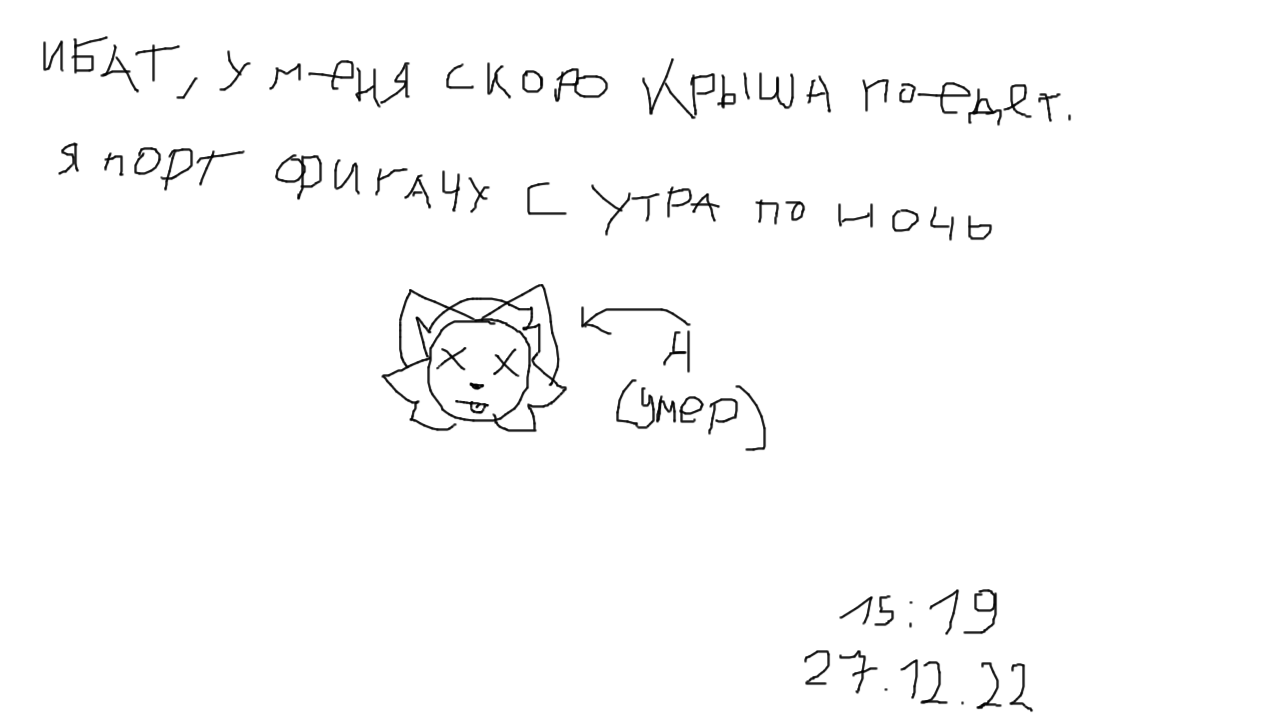 ИБАТ, У меня СКОРО КРЫША поедет.
я ПОРТ ФИГАЧУ С УТРА ПО НОЧЬ
Я
(умер)
15:19
27.12.22